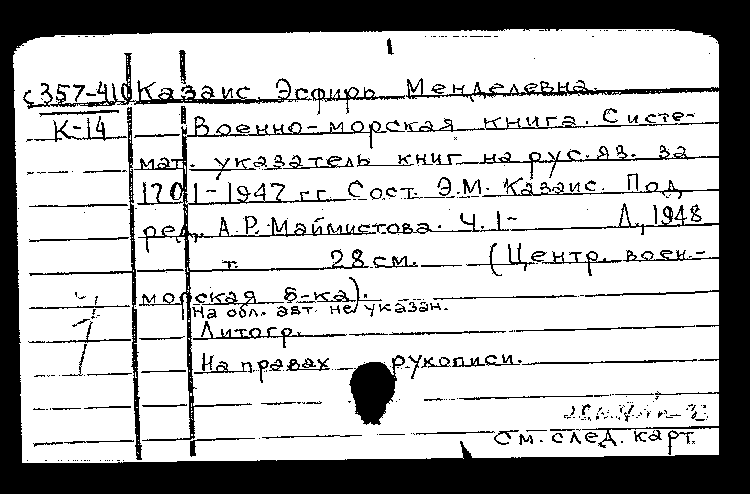 с357-410 Казаис. Эсфирь Менделевна.
К-14 Военно-морская книга. Систе-
мат. указатель книг на рус. яз. за
1701-1947 гг. Сост. Э.М. Казаис. Под
ред. А.Р. Маймистова. Ч. 1- Л., 1948
т. 28 см. (Центр. воен.-
морская б-ка).
На обл. авт. не указан.
Литогр.
На правах рукописи.
См. след. карт.